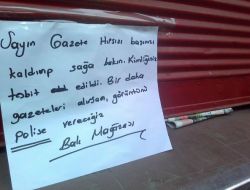 Sayın Gazete Hırsızı başınızı
kaldırıp sağa bakın. Kimliğiniz
tespit edildi. Bir daha
gazeteleri alırsan, görüntünü
polise vereceğiz
Balı Mağazası